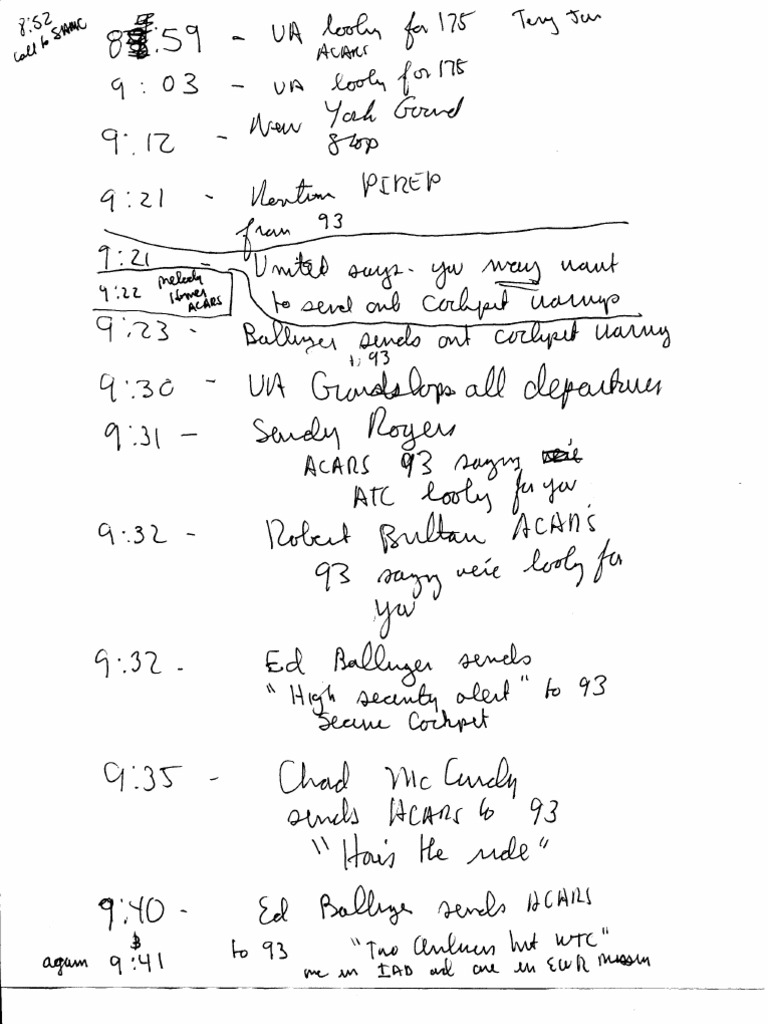 8:52
call to SAMC
8:59 - UA looky for 175
ACARS
9:03 - UA looky for 175
9:12 - New York Ground
Stop
9:21 - PIREP
from 93
9:21 - United says - you may want
to send out cockpit warnings
9:22 Melody
Homer
ACARS
9:23 - Ballinger sends out cockpit warning
to 93
9:30 - UA Groundstops all departures
9:31 - Sandy Rogers
ACARS 93 saying
ATC looky for you
9:32 - Robert ACARS
93 saying we're looky for
you
9:32 - Ed Ballinger sends
"High security alert" to 93
Secure Cockpit
9:35 - Chad McCurdy
sends ACARS to 93
"How's the ride"
9:40 - Ed Ballinger sends ACARS
to 93 "Two airliners hit WTC"
again 9:41
one in IAD and one in EWR